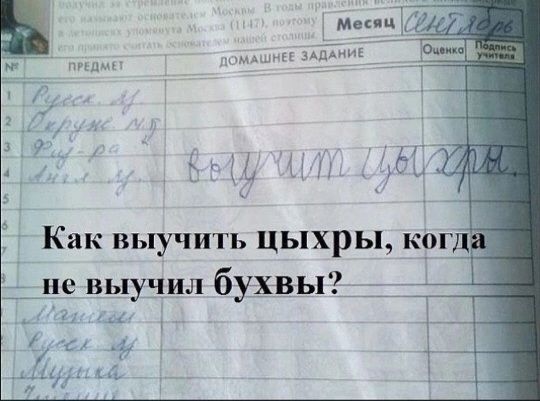 его называют основателем Москвы. В годы правления великого
в летописях упомянута Москва (1147), поэтому
его принято считать основателем нашей столицы.
Месяц Сентябрь
№ ПРЕДМЕТ ДОМАШНЕЕ ЗАДАНИЕ Оценка Подпись учителя
1 Русск. яз.
2 Окруж. м.
3 Физ-ра
4 Англ. яз. выучит цыхры.
5
6
Как выучить цыхры, когда
не выучил бухвы?
Матем
Русск яз
Музыка
Чтение